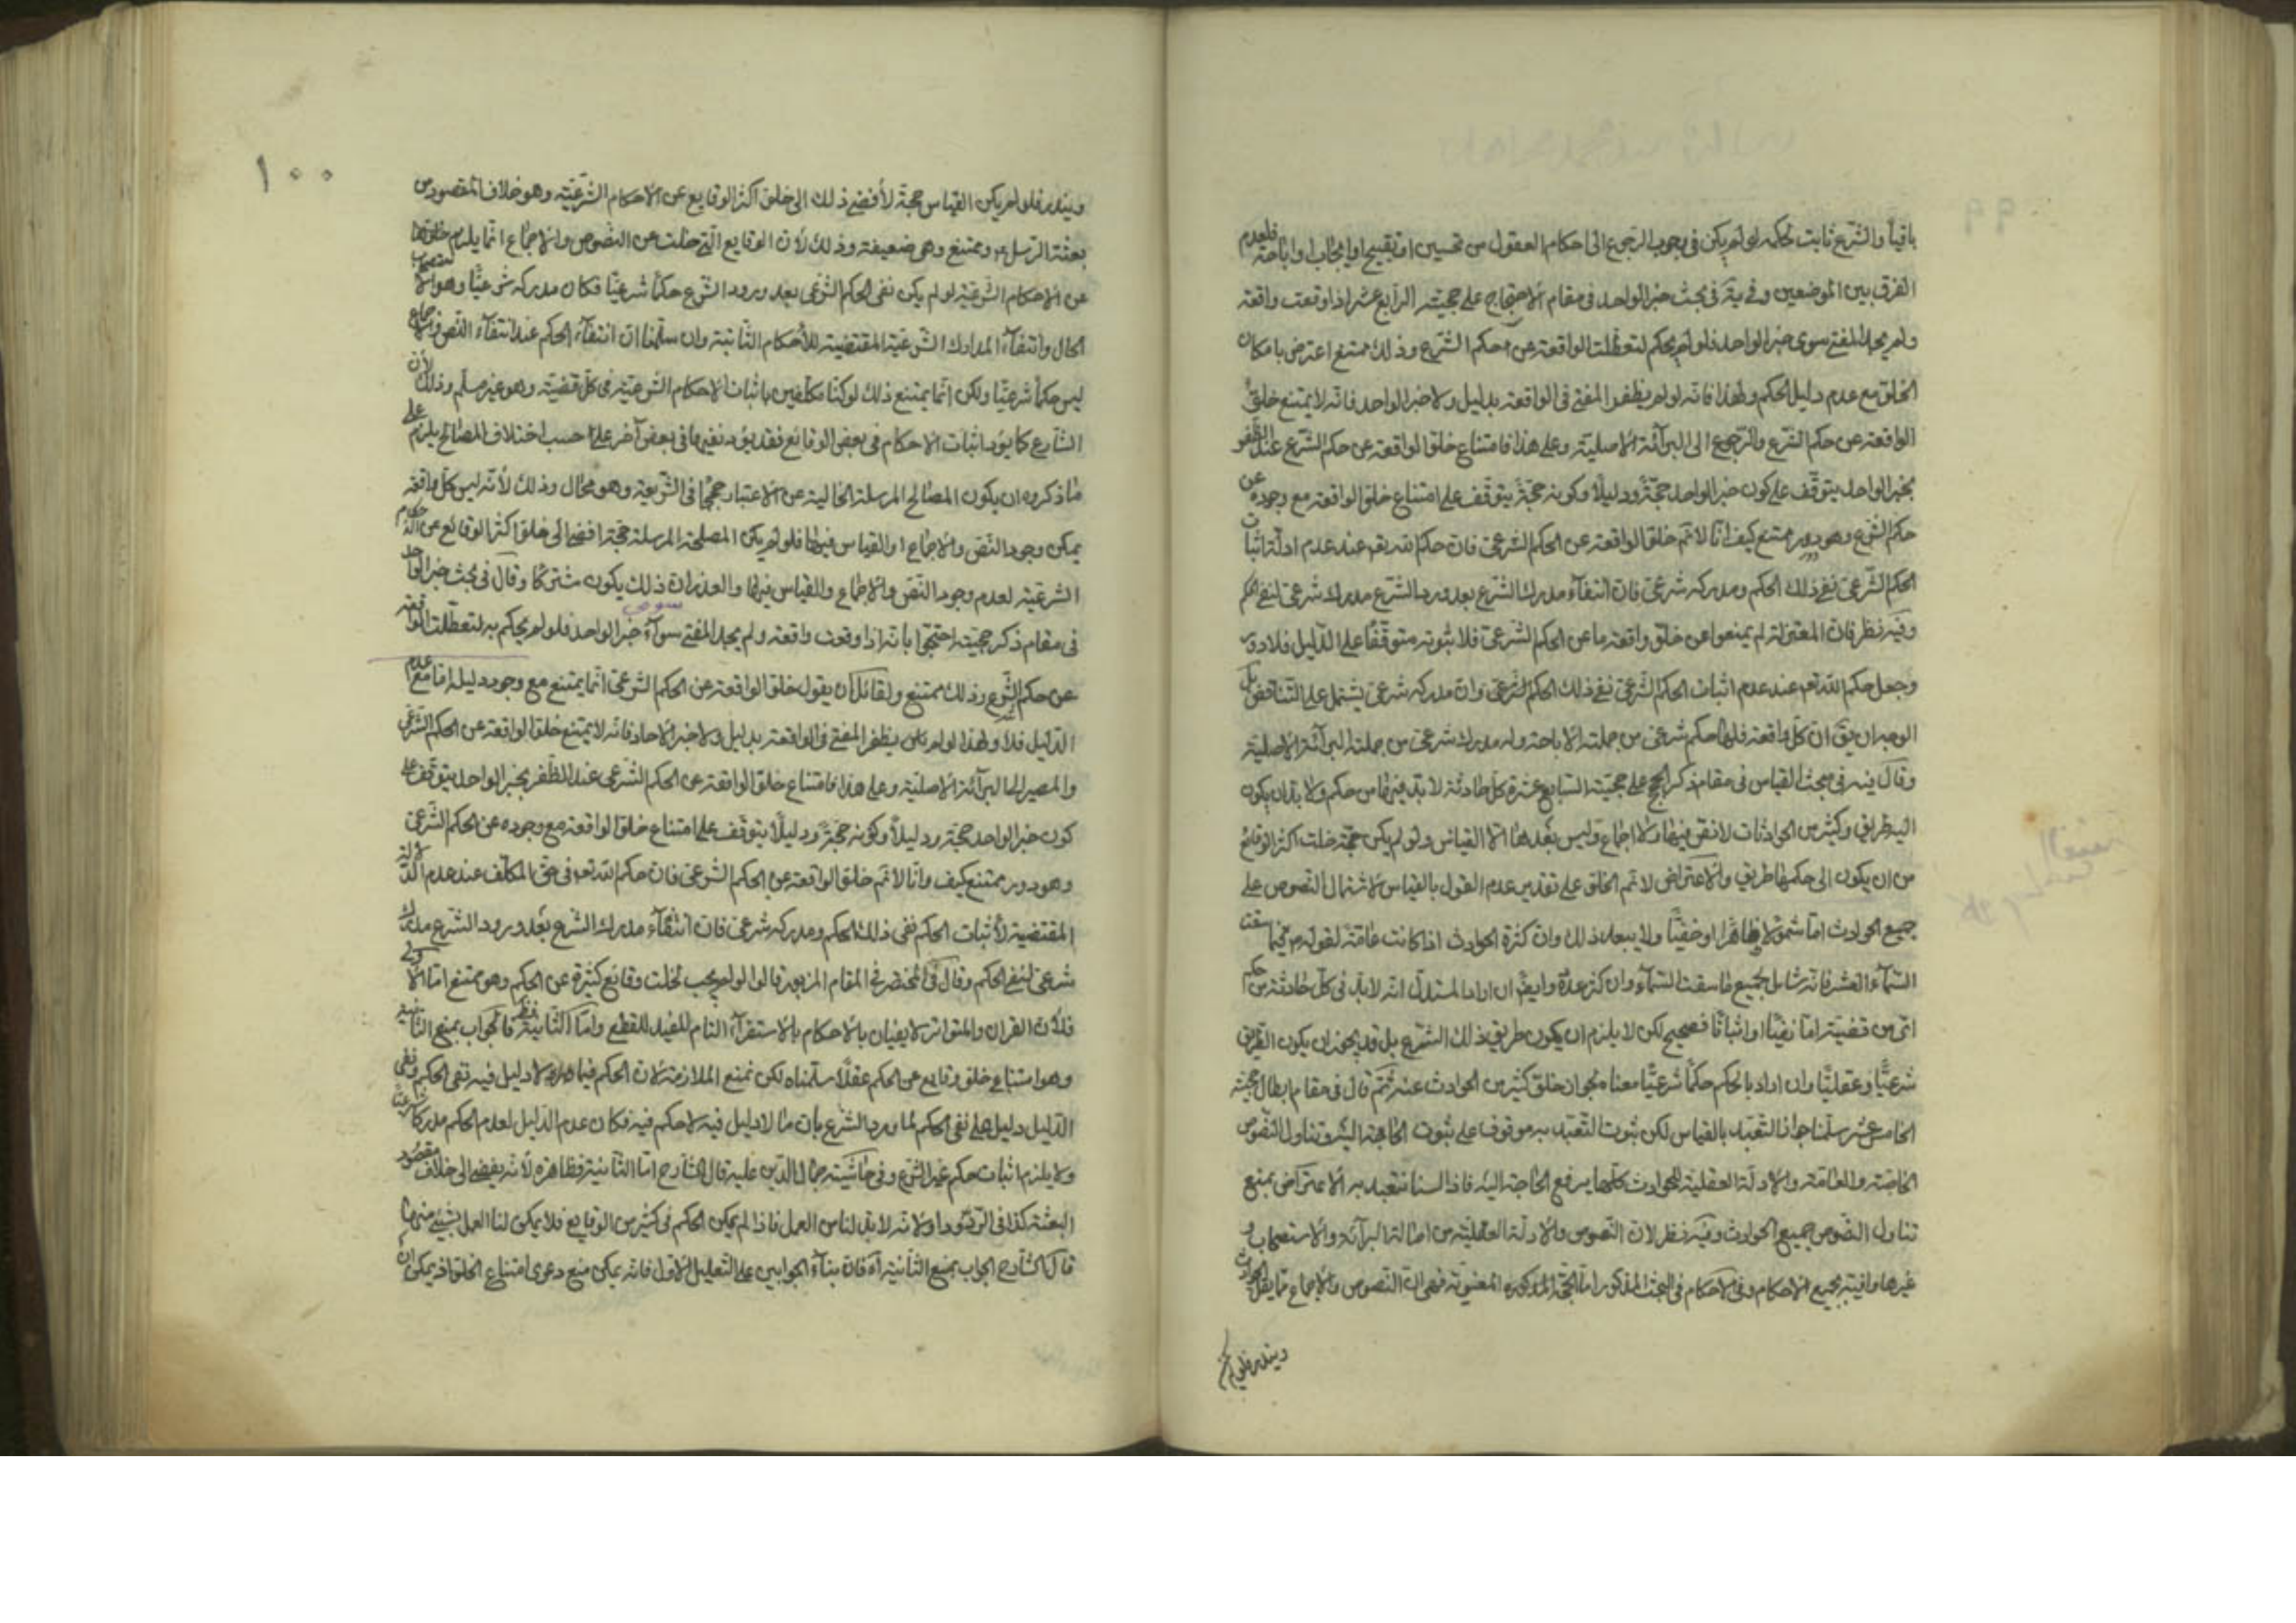 باقياً والشرع ثابت لحكمه لو لم يكن فى وجوب الرجوع الى احكام العقول من تحسين او تقبيح او ايجاب او اباحة فلعدم
الفرق بين الموضعين وفيه فى بحث خبر الواحد فى مقام الاحتجاج على حجيته الرابع عشر اذا وقعت واقعة
ولم يجد المفتى سوى خبر الواحد فلو لم يحكم لتعطلت الواقعة عن حكم الشرع وذلك ممتنع اعترض بامكان
الخلق مع عدم دليل الحكم ولهذا فانه لو لم يظفر المفتى فى الواقعة بدليل ولا خبر الواحد فانه لا يمتنع خلو
الواقعة عن حكم الشرع والرجوع الى البرائة الاصلية وعلى هذا فامتناع خلو الواقعة عن حكم الشرع عند الظفر
بخبر الواحد يتوقف على كون خبر الواحد حجة ودليلا وكونه حجة يتوقف على امتناع خلو الواقعة مع وجوده عن
حكم الشرع وهو دور ممتنع كيف انا لا نم خلو الواقعة عن الحكم الشرعى فان حكم الله تعم عند عدم ادلة اثبات
الحكم الشرعى نفى ذلك الحكم ومدركه شرعى فان انتفاء مدرك الشرع بعد ورود الشرع مدرك شرعى لنفى الحكم
وفيه نظر فان المعتزلة لم يمنعوا عن خلو واقعة ما عن الحكم الشرعى فلا ثبوته متوقفا على الدليل فلا دور
وجعل حكم الله تعم عند عدم اثبات الحكم الشرعى نفى ذلك الحكم الشرعى وان مدركه شرعى يشتمل على التناقض بل
الوجه ان يق ان كل واقعة فلها حكم شرعى من جملته الاباحة وله مدرك شرعى من جملته البرائة الاصلية
وقال فيه فى مبحث القياس فى مقام ذكر الحجج على حجيته السابع عشر كل حادثة لابد فيها من حكم ولا بد ان يكون
اليه طريق وكثير من الحادثات لا نص فيها ولا اجماع وليس بعدهما الا القياس ولو لم يكن حجة خلت اكثر الوقائع
من ان يكون الى حكمها طريق والاعتراض لا نم الخلو على تقدير عدم القول بالقياس لاشتمال النصوص على
جميع الحوادث اما شمولا ظاهرا او خفيا ولا يبعد ذلك وان كثرة الحوادث اذا كانت عامة لقوله فيما سقت
السماء العشر فانه شامل لجميع ما سقت السماء وان كثر عدة وايض ان اراد المستدل انه لابد فى كل حادثة من حكم
اى من قضية اما نفيا او اثباتا فصحيح لكن لا يلزم ان يكون طريق ذلك الشرع بل قد يجوز ان يكون الطريق
شرعيا وعقليا وان اراد بالحكم حكما شرعيا معناه بجواز خلو كثير من الحوادث عنه ثم قال فى مقام ابطال حجيته
الخامس عشر سلمنا جواز التعبد بالقياس لكن ثبوت التعبد به موقوف على ثبوت الحاجة اليه وتناول النصوص
الخاصة والعامة والادلة العقلية للحوادث كلها يرفع الحاجة اليه فاذا لسنا نتعبد به الاعتراض بمنع
تناول النصوص جميع الحوادث وفيه نظر لان النصوص والادلة العقلية من اصالة البرائة والاستصحاب و
غيرها وافية بجميع الاحكام وفى الاحكام فى البحث المذكور اما الحجة المذكورة المعنوية فهى ان النصوص والاجماع مما يقل الحوادث
ويندر فلو لم يكن
١٠٠
ويندر فلو لم يكن القياس حجة لأفضى ذلك الى خلو اكثر الوقايع عن الاحكام الشرعية وهو خلاف المقصود من
بعثة الرسل وممتنع وهى ضعيفة وذلك لان الوقايع التى خلت عن النصوص والاجماع انما يلزم خلوها
عن الاحكام الشرعية لو لم يكن نفى الحكم الشرعى بعد ورود الشرع حكما شرعيا فكان مدركه شرعيا وهو استصحاب
الحال وانتفاء المدارك الشرعية المقتضية للأحكام الثابتة وان سلمنا ان انتفاء الحكم عند انتفاء النص والاجماع
ليس حكما شرعيا ولكن انما يمتنع ذلك لو كنا مكلفين باثبات الاحكام الشرعية فى كل قضية وهو غير مسلم وذلك لأن
الشارع كما يرد اثبات الاحكام فى بعض الوقائع فقد يرد نفيها فى بعض آخر على حسب اختلاف المصالح يلزم على
ما ذكروه ان يكون المصالح المرسلة الخالية عن الاعتبار حججا فى الشريعة وهو محال وذلك لأنه ليس كل واقعة
يمكن وجود النص والاجماع او القياس فيها فلو لم يكن المصلحة المرسلة حجة افضى الى خلو اكثر الوقائع عن الاحكام
الشرعية لعدم وجود النص والاجماع والقياس فيها والعذر ان ذلك يكون مشتركا وقال فى بحث خبر الواحد
فى مقام ذكر حجيته احتجوا بانه اذا وقعت واقعة ولم يجد المفتى سواء خبر الواحد فلو لم يحكم به لتعطلت الواقعة
سوى
عن حكم الشرع وذلك ممتنع ولقائل ان يقول خلو الواقعة عن الحكم الشرعى انما يمتنع مع وجود دليله اما مع عدم
الدليل فلا ولهذا لو لم يظفر المفتى فى الواقعة بدليل ولا خبر الاحاد فانه لا يمتنع خلو الواقعة عن الحكم الشرعى
والمصير الى البرائة الاصلية وعلى هذا فامتناع خلو الواقعة عن الحكم الشرعى عند الظفر بخبر الواحد يتوقف على
كون خبر الواحد حجة ودليلا وكونه حجة ودليلا يتوقف على امتناع خلو الواقعة مع وجوده عن الحكم الشرعى
وهو دور ممتنع كيف وانا لا نم خلو الواقعة عن الحكم الشرعى فان حكم الله تعم فى حق المكلف عند عدم الادلة
المقتضية لأثبات الحكم نفى ذلك الحكم ومدركه شرعى فان انتفاء مدرك الشرع بعد ورود الشرع مدرك
شرعى لنفى الحكم وقال فى المختصر فى المقام المزبور قالوا لو لم يجب لخلت وقائع كثيرة عن الحكم وهو ممتنع اما الاولى
فلأن القرآن والمتواتر لا يفيان بالاحكام بالاستقراء التام المفيد للقطع واما الثانية فظ فالجواب بمنع الثانية
وهو امتناع خلو وقايع عن الحكم عقلا سلمناه لكن نمنع الملازمة لان الحكم فيما لا دليل فيه نفى الحكم ونفى
الدليل دليل على نفى الحكم لما ورد الشرع بان ما لا دليل فيه لا حكم فيه فكان عدم الدليل لعدم الحكم مدركا شرعيا
ولا يلزم اثبات حكم غير الشرع وفى حاشية جمال الدين عليه قال الشارح اما الثانية فظاهرة لأنه يفضى الى خلاف مقصود
البعثة كذا فى الردود اولا انه لابد لناس العمل فاذا لم يمكن الحكم فى كثير من الوقايع فلا يمكن لنا العمل بشيىء منها
قال الشارح الجواب بمنع الثانية اه فان بناء الجوابين على التعليل الاول فانه يمكن منع دعوى امتناع الخلو اذ يمكن ان